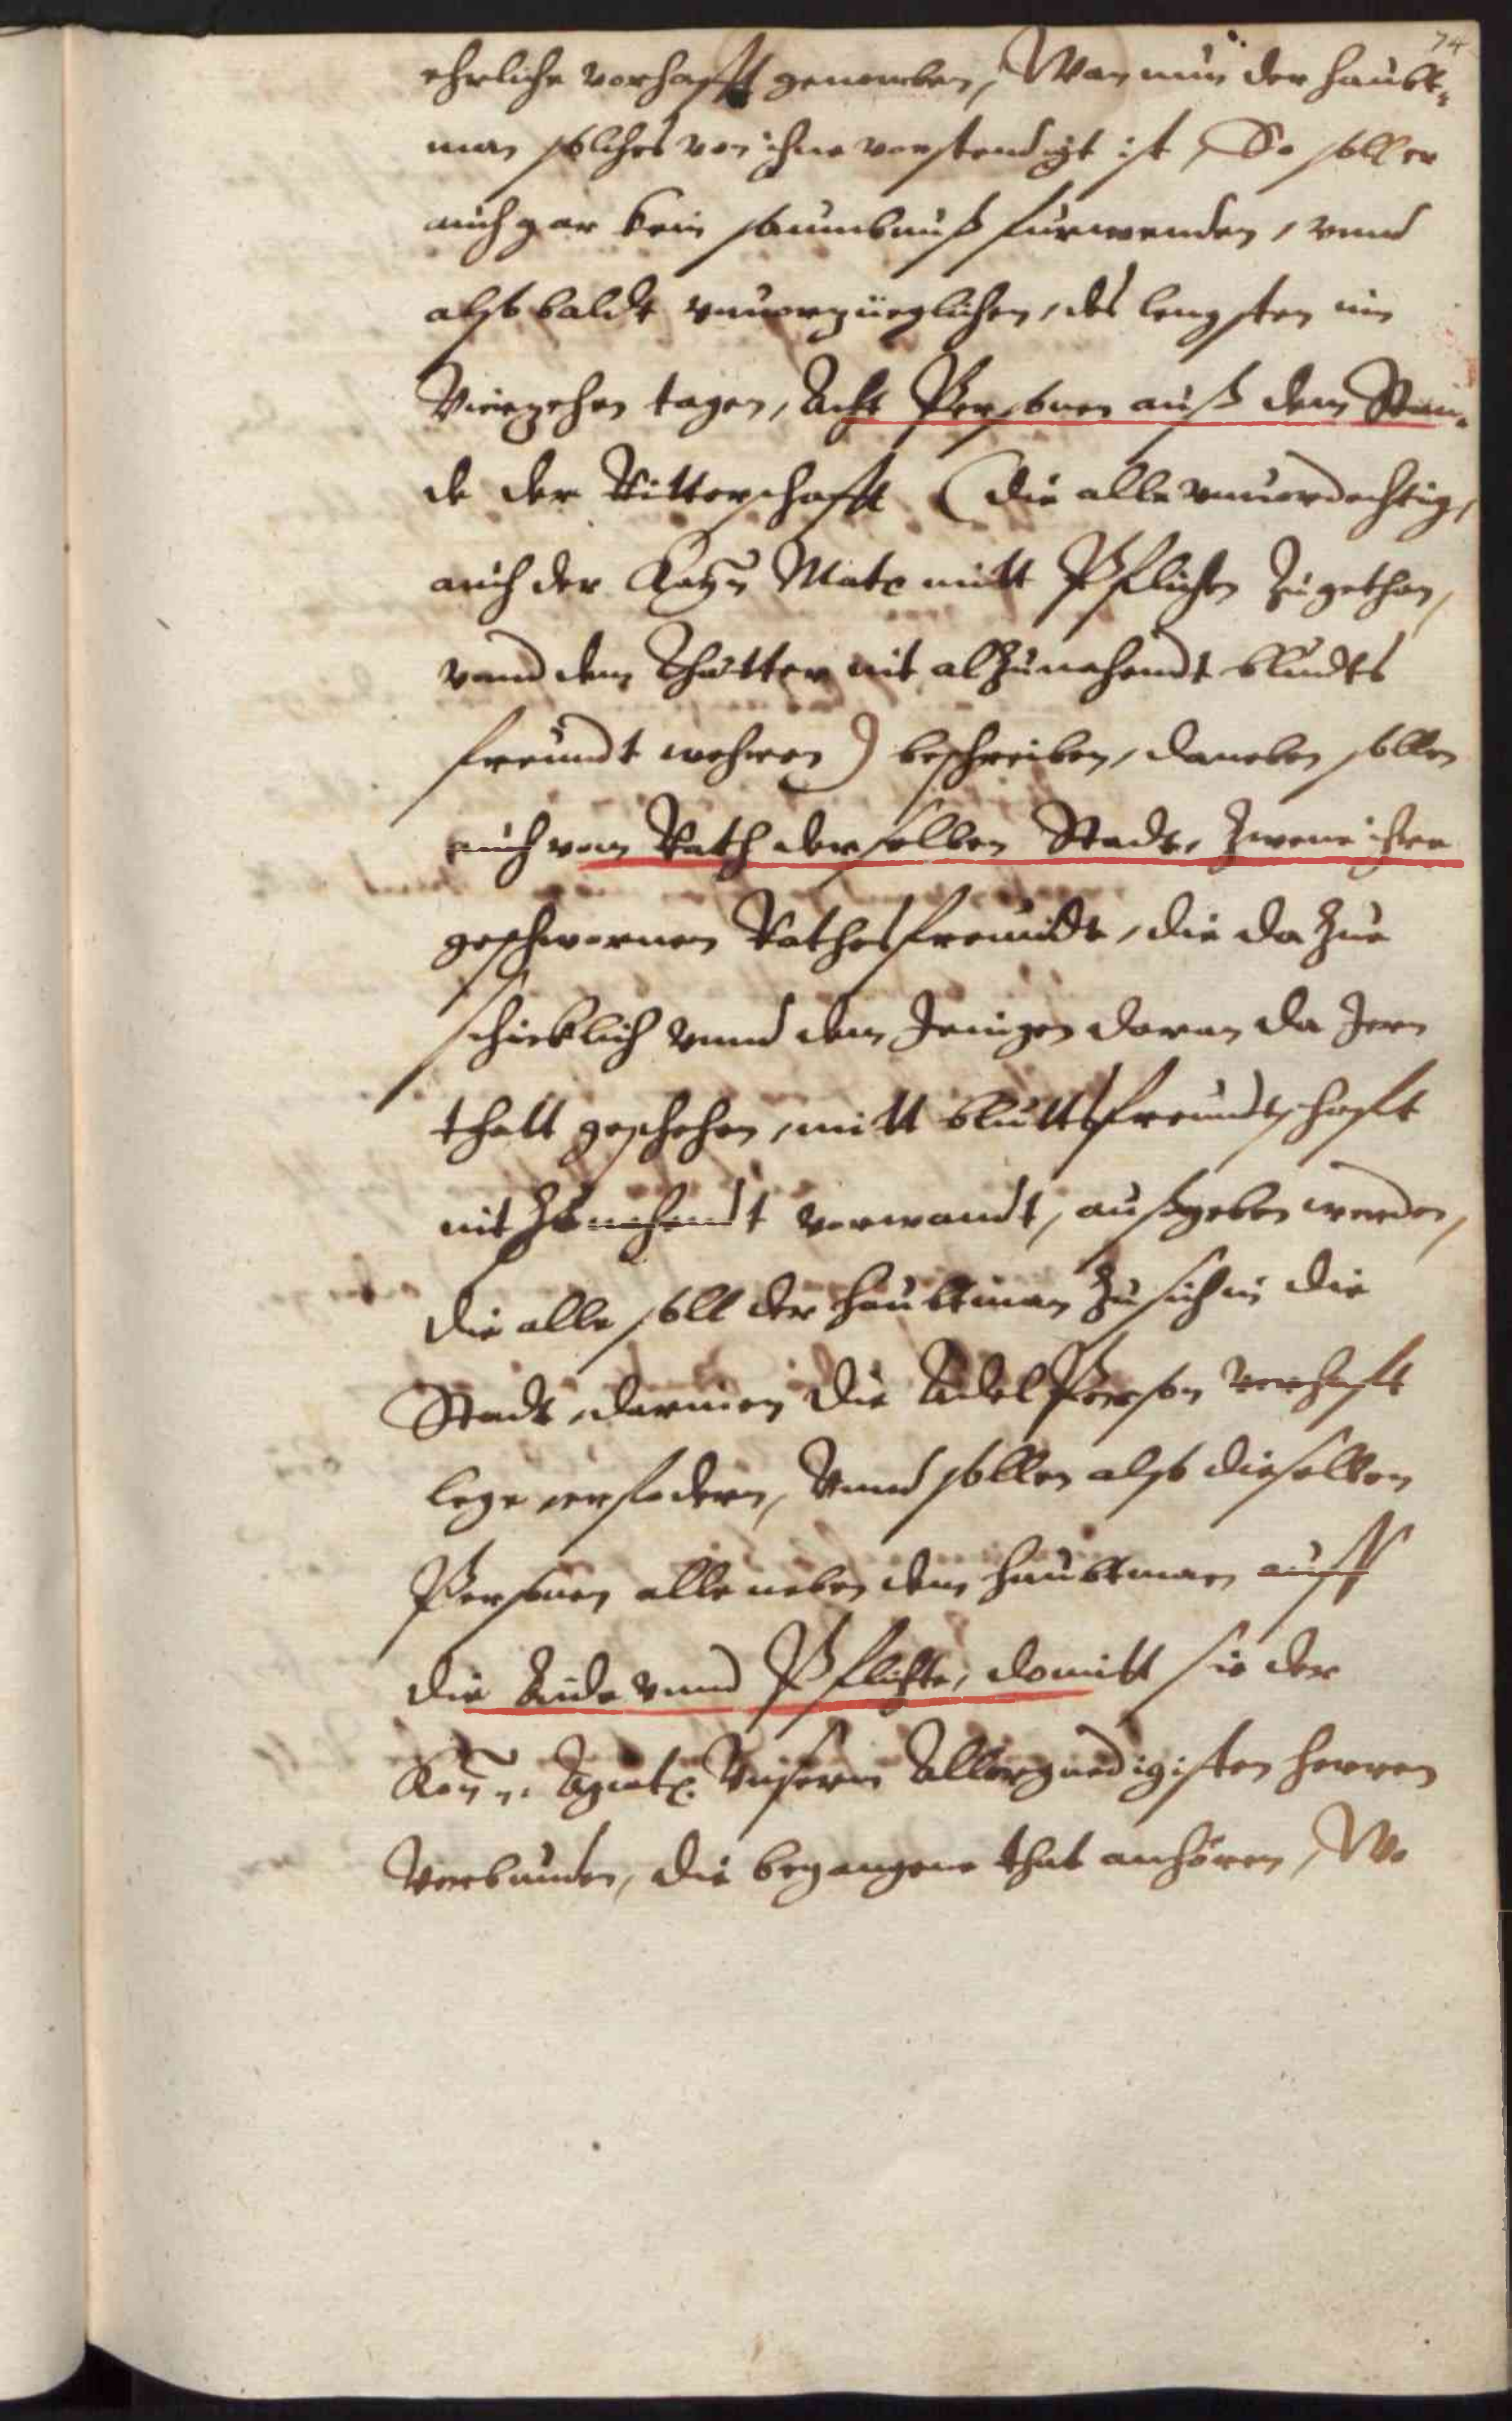 74
ehrliche vorhafft genomben, Wan nun der haubt„
man solches von ihne vorstendigt ist, So soll er
auch gar kein saumbnuß furwenden, vnnd
alßbaldt vnuorzüeglichen, des lengsten in
Vierzehen tagen, Acht Personen auß dem Stan„
de der Ritterschafft (die alle vnuordechtig,
auch der Kay: Matt: mitt Pflichten zugethan,
vnnd dem Thätter nit alzunahendt bludts
freundt wehren) beschreiben, daneben sollen
auch vom Rath derselben Stadt, zwene ihrer
geschwornen Rathsfreundt, die da zue
schicklich vnnd dem Jenigen daran da Jenn
thatt geschehen, mitt bluttsfreundtschafft
nit zu nahendt verwandt, außgeben werden,
die alle soll der haubtman zu sich in die
Stadt, darinnen die Adelß Person verhafft
lege, erfodern, Vnnd sollen also dieselben
Personen alle neben dem haubtman auff
die Aide vnnd Pflichte, domitt sie der
Kay: Matt: Vnserm Allergnedigisten herren
Verbunden, die begangene that anhören, Wo